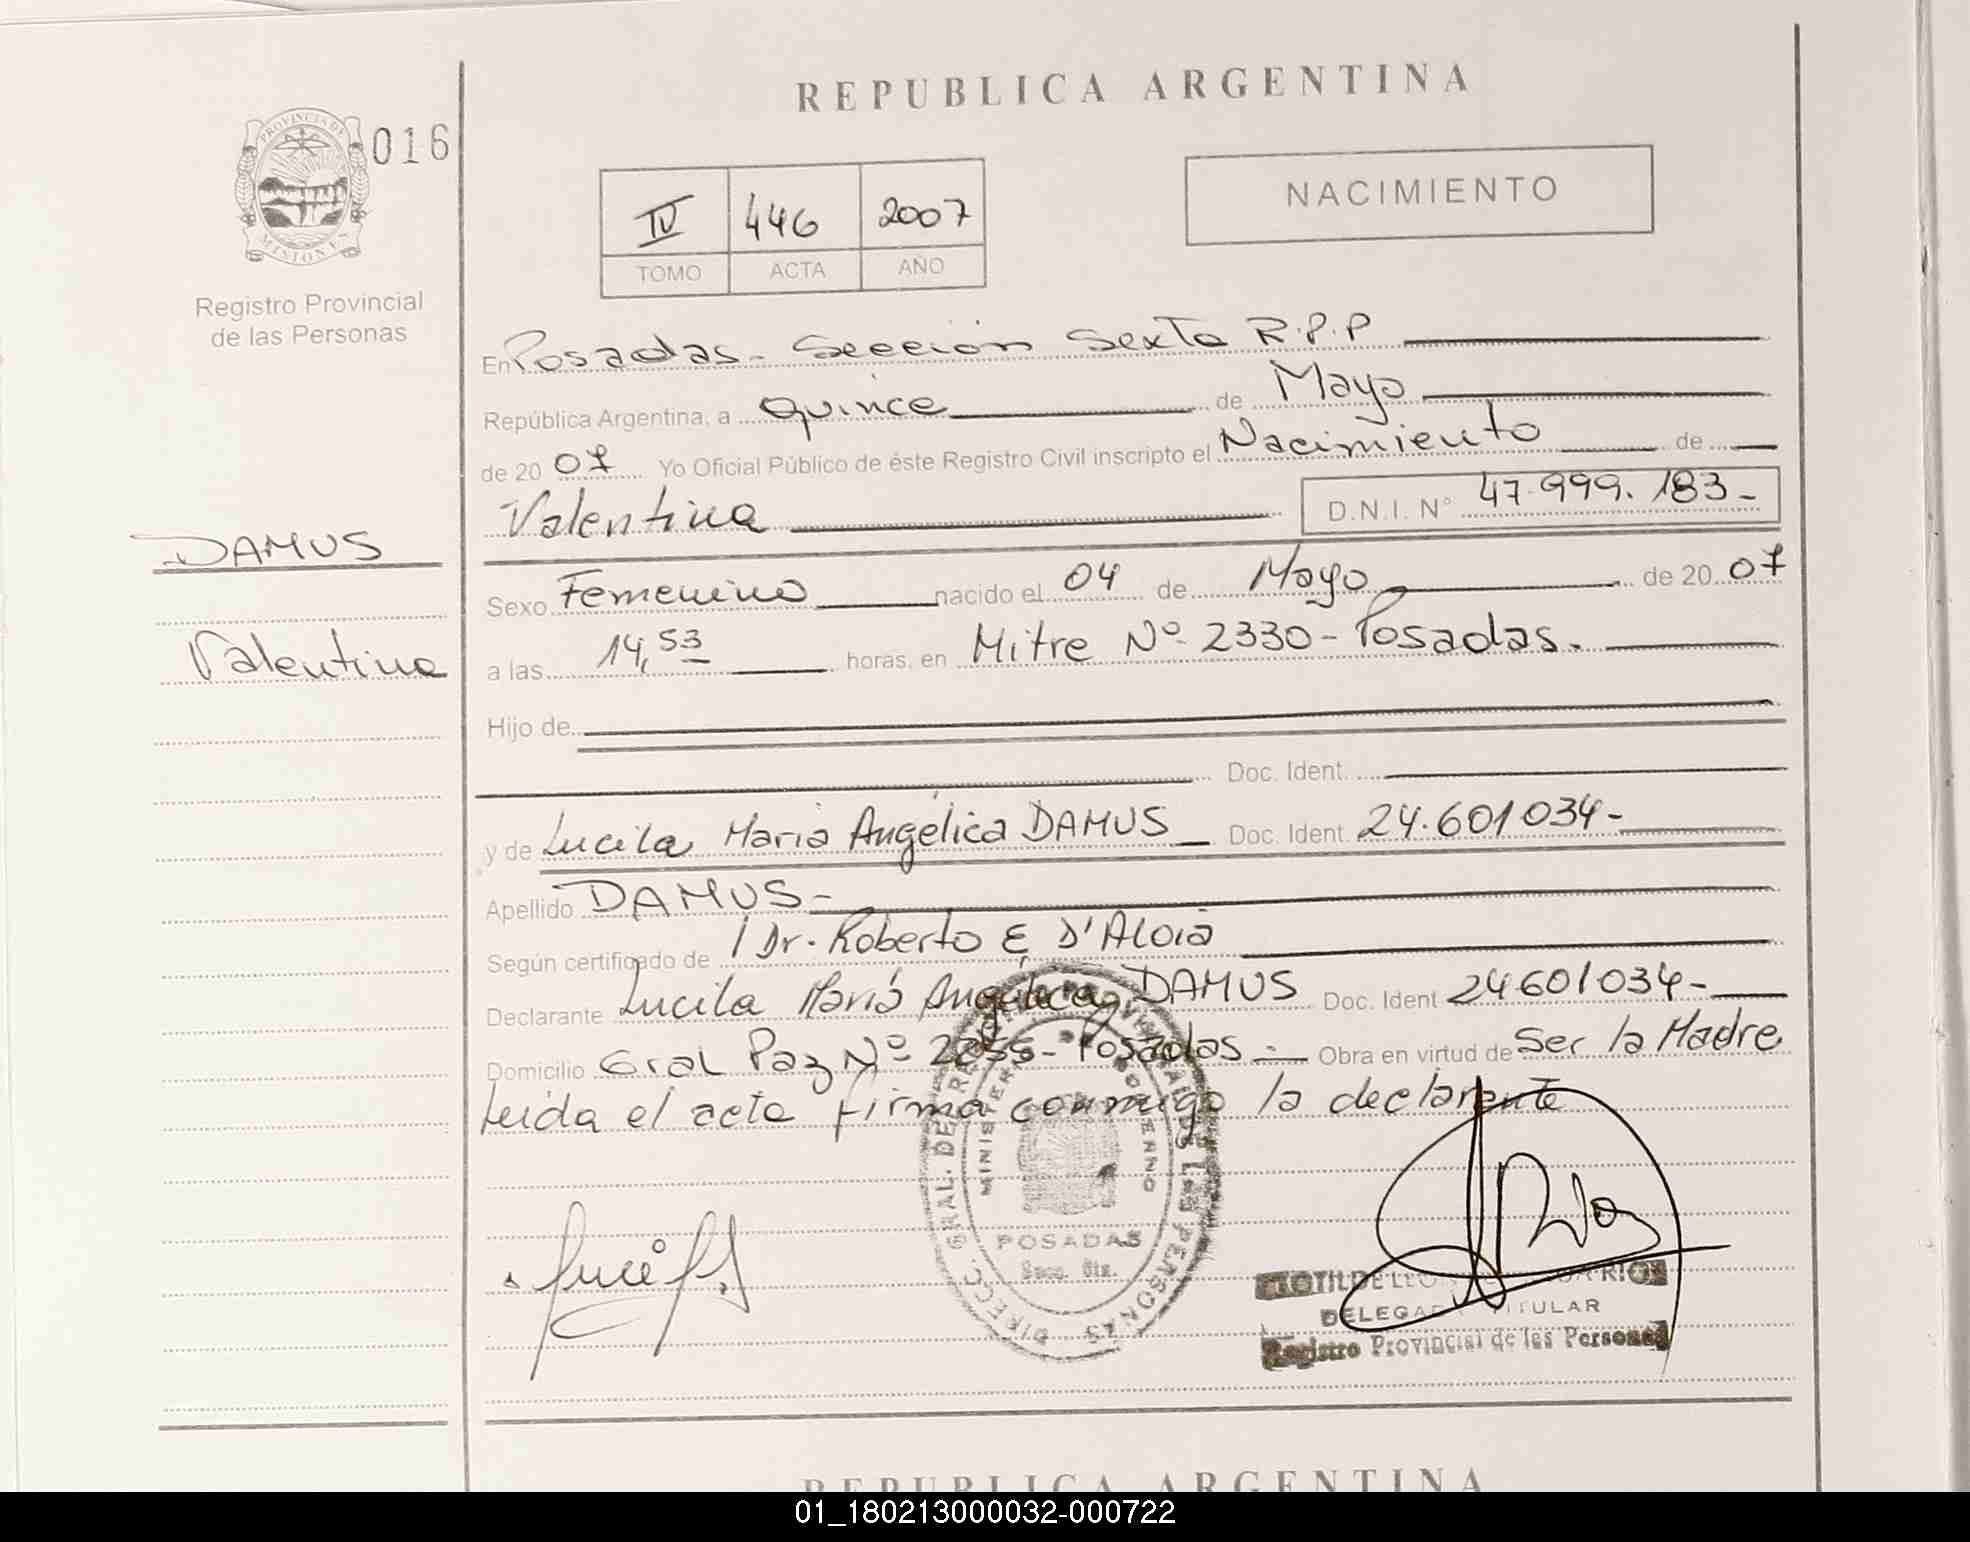 REPUBLICA ARGENTINA
PROVINCIA DE
MISIONES
016
Registro Provincial
de las Personas
IV 446 2007
TOMO ACTA AÑO
NACIMIENTO
En Posadas - Sección Sexta R.P.P
República Argentina, a quince de Mayo
de 2007 Yo Oficial Público de éste Registro Civil inscripto el Nacimiento de
Valentina D.N.I. N° 47.999.183-
DAMUS
Valentina
Sexo Femenino nacido el 04 de Mayo de 2007
a las 14,53 horas, en Mitre Nº 2330 - Posadas.
Hijo de
Doc. Ident.
y de Lucila Maria Angélica DAMUS Doc. Ident. 24.601034-
Apellido DAMUS-
Según certificado de Dr. Roberto E D'Aloia
Declarante Lucila Maria Angélica DAMUS Doc. Ident 24601034-
Domicilio Gral Paz Nº - Posadas - Obra en virtud de Ser la Madre
Leida el acta firma conmigo la declarante
MINISTERIO DE GOBIERNO
POSADAS
DIREC. GRAL. DE LAS PERSONAS
DELEGADA TITULAR
Registro Provincial de las Personas
REPUBLICA ARGENTINA
01_180213000032-000722